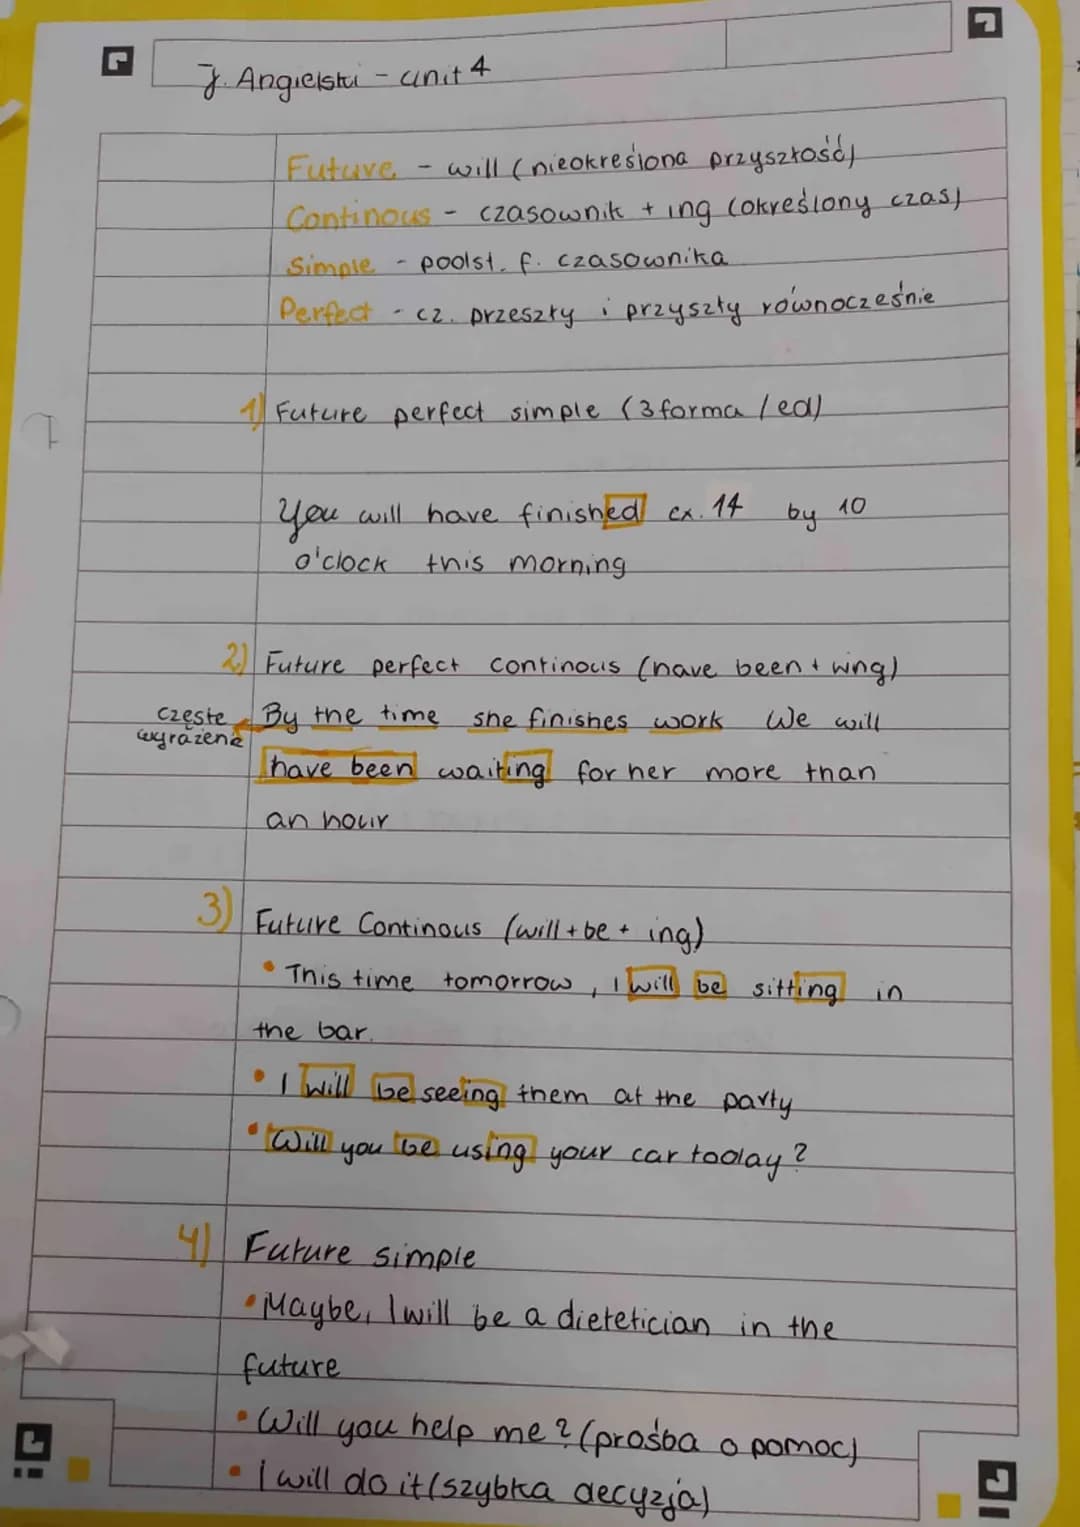 J. Angielski - unit 4
Future - will (nieokreślona przyszłość)
Continous - czasownik + ing (określony czas)
Simple - podst. f. czasownika
Perfect - cz. przeszły i przyszły równocześnie
1) Future perfect simple (3 forma / ed)
You will have finished ex. 14 by 10
o'clock this morning
2) Future perfect continous (have been + wing)
częste wyrażenie
By the time she finishes work We will
have been waiting for her more than
an hour
3) Future Continous (will + be + ing)
• This time tomorrow, I will be sitting in
the bar.
• I will be seeing them at the party
• Will you be using your car today?
4) Future simple
• Maybe, I will be a dietetician in the
future
• Will you help me? (prośba o pomoc)
• I will do it (szybka decyzja)